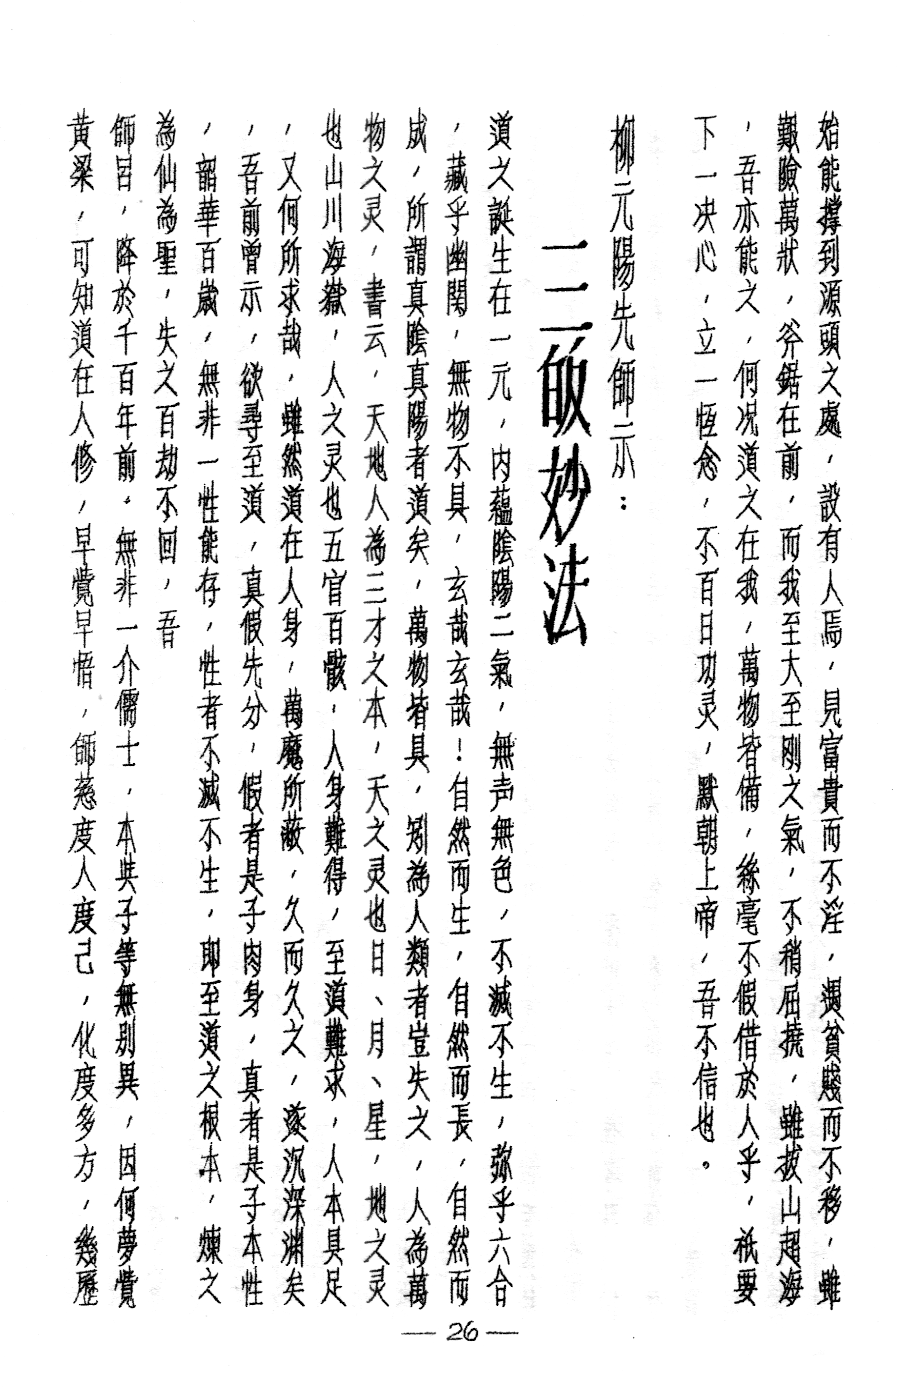 始能撐到源頭之處，設有人焉，見富貴而不淫，遇貧賤而不移，雖
艱險萬狀，斧鋸在前，而我至大至刚之氣，不稍屈撓，雖拔山超海
，吾亦能之，何况道之在我，萬物皆備，絲毫不假借於人乎，祇要
下一决心，立一恆念，不百日功灵，默朝上帝，吾不信也。
柳元陽先師示：
二三皈妙法
道之誕生在一元，内蘊陰陽二氣，無声無色，不滅不生，弥乎六合
，藏乎幽関，無物不具，玄哉玄哉！自然而生，自然而長，自然而
成，所謂真陰真陽者道矣，萬物皆具，别為人類者豈失之，人為萬
物之灵，書云，天地人為三才之本，天之灵也日、月、星，地之灵
也山川海嶽，人之灵也五官百骸，人身難得，至道難求，人本具足
，又何所求哉，雖然道在人身，萬魔所蔽，久而久之，遂沉深渊矣
，吾前曾示，欲尋至道，真假先分，假者是子肉身，真者是子本性
，韶華百歲，無非一性能存，性者不滅不生，即至道之根本，煉之
為仙為聖，失之百劫不回，吾
師呂，降於千百年前，無非一介儒士，本與子等無别異，因何夢覺
黄梁，可知道在人修，早覺早悟，師慈度人度己，化度多方，幾歷
— 26 —